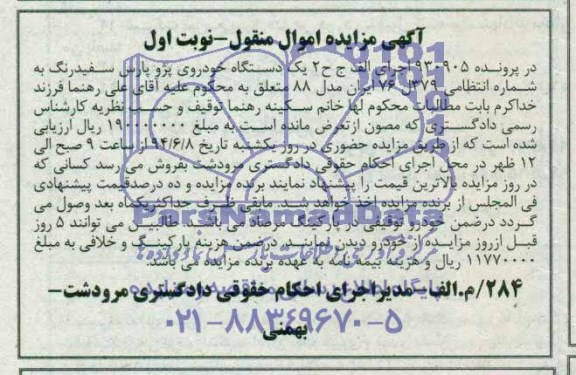 آگهی مزایده اموال منقول–نوبت اول
در پرونده ۹۳۰۹۰۵ اجرای الف ج ح۲ یک دستگاه خودروی پژو پارس سفیدرنگ به
شماره انتظامی ۳۷۹ل۷۶ ایران مدل ۸۸ متعلق به محکوم علیه آقای علی رهنما فرزند
خداکرم بابت مطالبات محکوم لها خانم سکینه رهنما توقیف و حسب نظریه کارشناس
رسمی دادگستری که مصون ازتعرض مانده است به مبلغ ۱۹۰۰۰۰۰۰۰ ریال ارزیابی
شده است که از طریق مزایده حضوری در روز یکشنبه تاریخ ۹۴/۶/۸ از ساعت ۹ صبح الی
۱۲ ظهر در محل اجرای احکام حقوقی دادگستری مرودشت بفروش می رسد کسانی که
در روز مزایده بالاترین قیمت را پیشنهاد نمایند برنده مزایده و ده درصدقیمت پیشنهادی
فی المجلس از برنده مزایده اخذ خواهد شد. مابقی ظرف حداکثریکماه بعد وصول می
گردد درضمن خودرو توقیفی در پارکینگ مرصاد می باشد. طالبین می توانند ۵ روز
قبل ازروز مزایده از خودرو دیدن نمایند. درضمن هزینه پارکینگ و خلافی به مبلغ
۱۱۷۷۰۰۰۰ ریال و هزینه بیمه نامه به عهده برنده مزایده می باشد.
۲۸۴/م.الف–مدیر اجرای احکام حقوقی دادگستری مرودشت–
بهمنی
ParsNamadData
۰۲۱-۸۸۳۴۹۶۷۰-۵